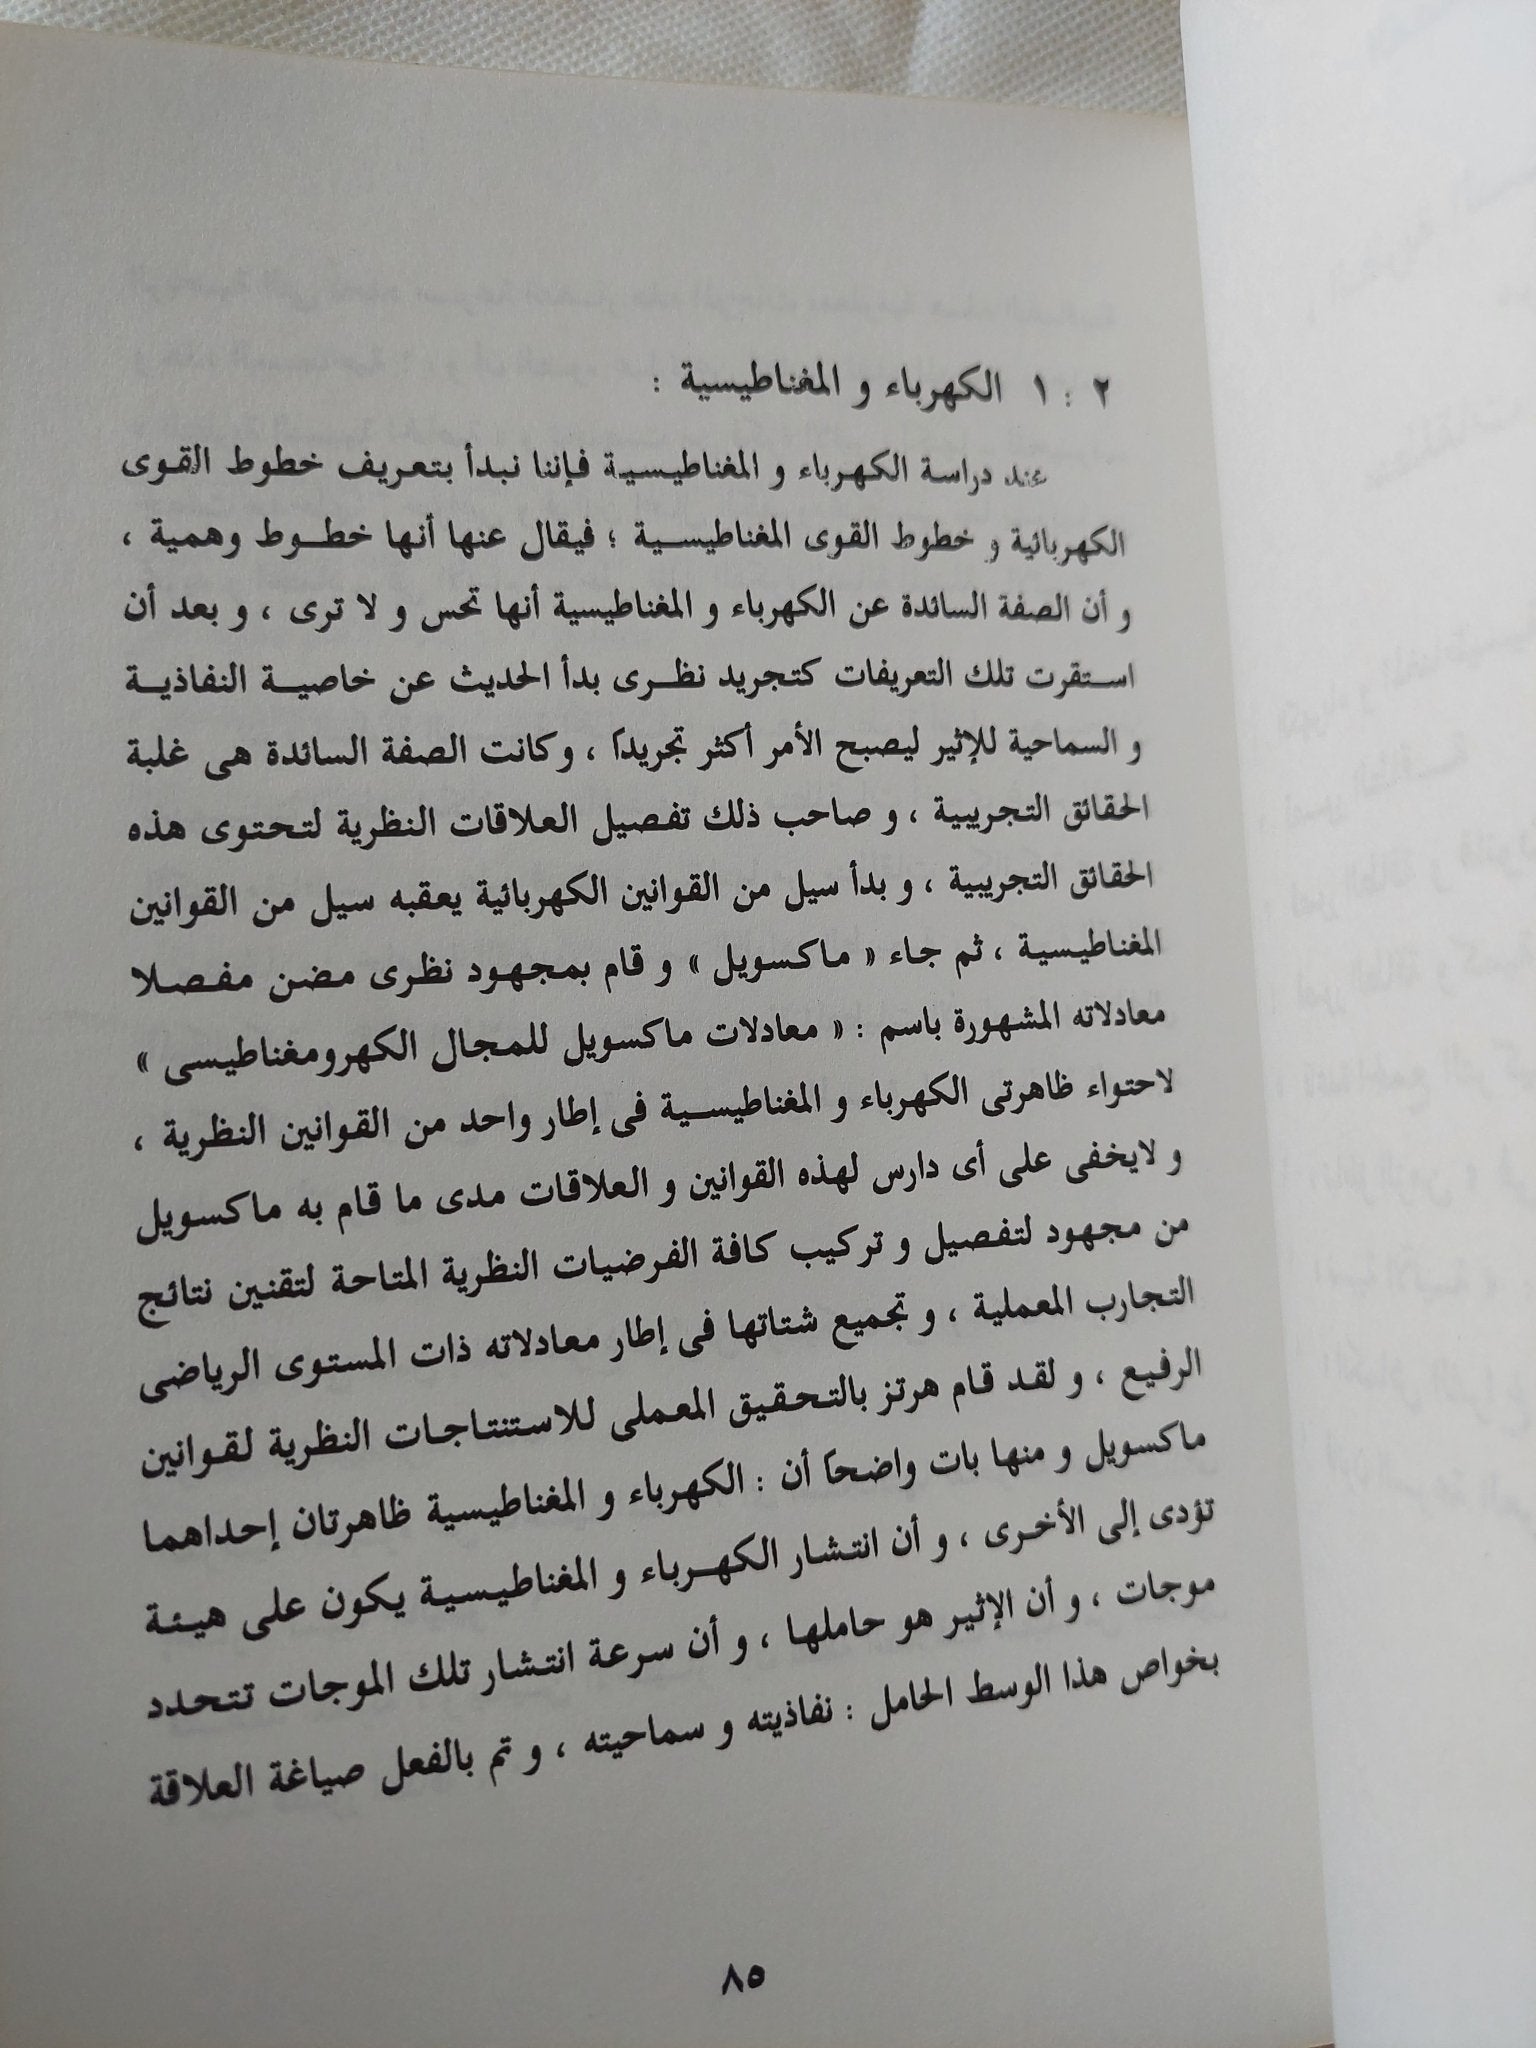 ٢ : ١ الكهرباء و المغناطيسية :
عند دراسة الكهرباء و المغناطيسية فإننا نبدأ بتعريف خطوط القوى
الكهربائية و خطوط القوى المغناطيسية ؛ فيقال عنها أنها خطوط وهمية ،
و أن الصفة السائدة عن الكهرباء و المغناطيسية أنها تحس و لا ترى ، و بعد أن
استقرت تلك التعريفات كتجريد نظرى بدأ الحديث عن خاصية النفاذية
و السماحية للإثير ليصبح الأمر أكثر تجريدًا ، وكانت الصفة السائدة هى غلبة
الحقائق التجريبية ، و صاحب ذلك تفصيل العلاقات النظرية لتحتوى هذه
الحقائق التجريبية ، و بدأ سيل من القوانين الكهربائية يعقبه سيل من القوانين
المغناطيسية ، ثم جاء « ماكسويل » و قام بمجهود نظرى مضن مفصلا
معادلاته المشهورة باسم : « معادلات ماكسويل للمجال الكهرومغناطيسى »
لاحتواء ظاهرتى الكهرباء و المغناطيسية فى إطار واحد من القوانين النظرية ،
و لايخفى على أى دارس لهذه القوانين و العلاقات مدى ما قام به ماكسويل
من مجهود لتفصيل و تركيب كافة الفرضيات النظرية المتاحة لتقنين نتائج
التجارب المعملية ، و تجميع شتاتها فى إطار معادلاته ذات المستوى الرياضى
الرفيع ، و لقد قام هرتز بالتحقيق المعملى للاستنتاجات النظرية لقوانين
ماكسويل و منها بات واضحًا أن : الكهرباء و المغناطيسية ظاهرتان إحداهما
تؤدى إلى الأخرى ، و أن انتشار الكهرباء و المغناطيسية يكون على هيئة
موجات ، و أن الإثير هو حاملها ، و أن سرعة انتشار تلك الموجات تتحدد
بخواص هذا الوسط الحامل : نفاذيته و سماحيته ، و تم بالفعل صياغة العلاقة
٨٥